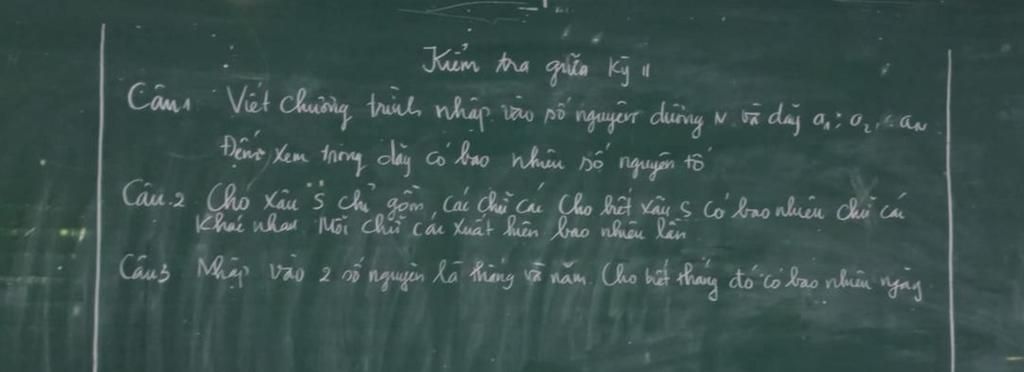 Kiểm tra giữa kỳ II
Câu 1 Viết chương trình nhập vào số nguyên dương N và dãy a1; a2, .. aN
Đếm xem trong dãy có bao nhiêu số nguyên tố
Câu 2 Cho xâu S chỉ gồm các chữ cái Cho biết xâu S có bao nhiêu chữ cái
khác nhau Mỗi chữ cái xuất hiện bao nhiêu lần
Câu 3 Nhập vào 2 số nguyên là tháng và năm. Cho biết tháng đó có bao nhiêu ngày